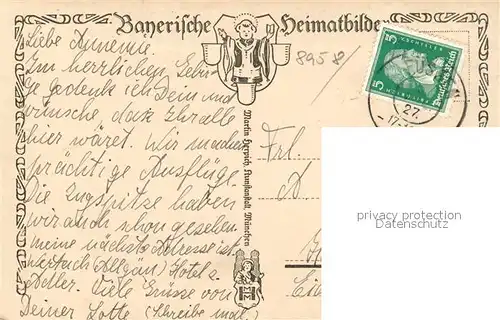 Bayerische Heimatbilder
Liebe Annemie
Im herrlichen Gebir-
ge gedenke ich Dein und
wünsche, dass Ihr alle
hier wäret. Wir machen
prächtige Ausflüge.
Die Zugspitze haben
wir auch schon gesehen.
meine nächste Adresse ist
Nertach (Allgäu) Hotel z.
Adler. Viele Grüsse von
Deiner Lotte (Schreibe mal)
8958
Martin Herpich, Kunstanstalt, München
Frl.
A
5 5
Deutsches Reich
27.
-17-
privacy protection
Datenschutz